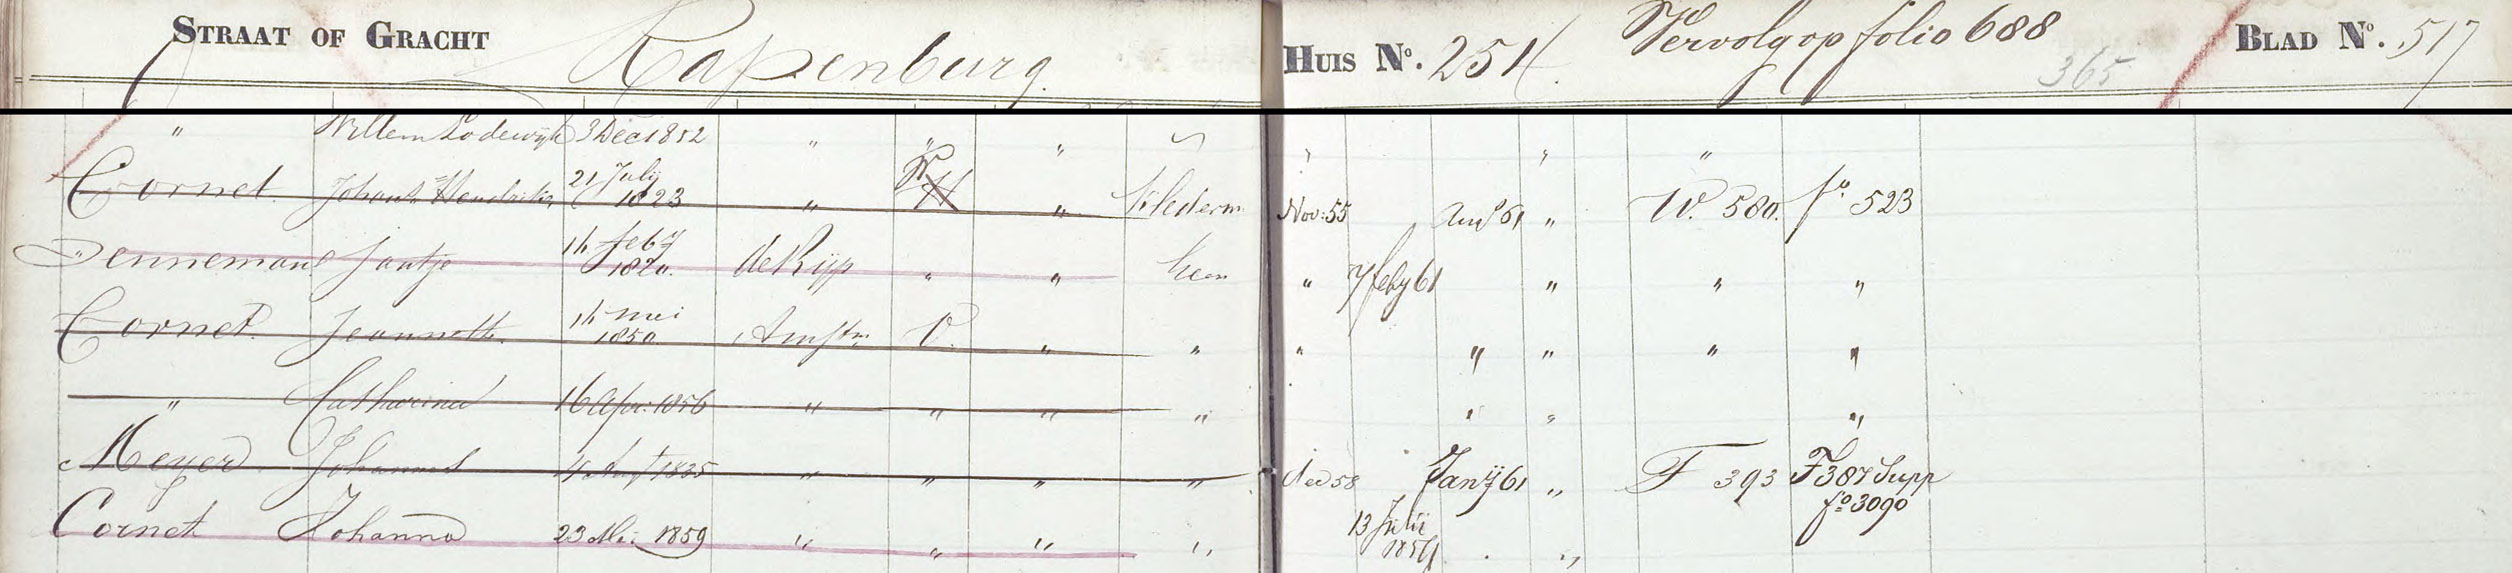 STRAAT OF GRACHT Rapenburg. HUIS No. 254. Vervolg op folio 688 365 BLAD No. 517
" Willem Lodewyk 3 Dec 1852 " " " " " "
Cornet Johan Hendrik 21 July 1823 " W H " Klederm Nov: 55 61 " W. 580. fo. 523
Denneman Jantje 14 feby 1820. de Rijp " " " 7 feby 61 " " "
Cornet Jeannette 14 mei 1850 Amstm V. " " " " " " "
" Catharina 16 Apr: 1856 " " " " " " "
Meyer Johannes 4 1835 " " " " dec 58 Jany 61 " F 393 F 387 Supp fo 3090
Cornet Johanna 23 1859 " " " " 13 Julij "